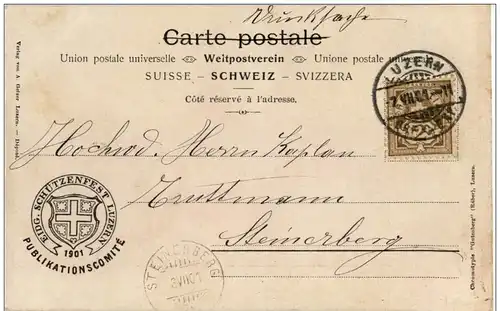 Drucksache
Carte postale
Union postale universelle Weltpostverein Unione postale universale
SUISSE. – SCHWEIZ – SVIZZERA
Côté réservé à l'adresse.
Verlag von A. Reber Luzern. – Déposé.
LUZERN
Hochwd. Herrn Kaplan
Truttmann
Steinerberg
EIDG. SCHÜTZENFEST LUZERN
1901
PUBLIKATIONSCOMITÉ
STEINERBERG
Chromotypie "Gutenberg" (Räber), Luzern.